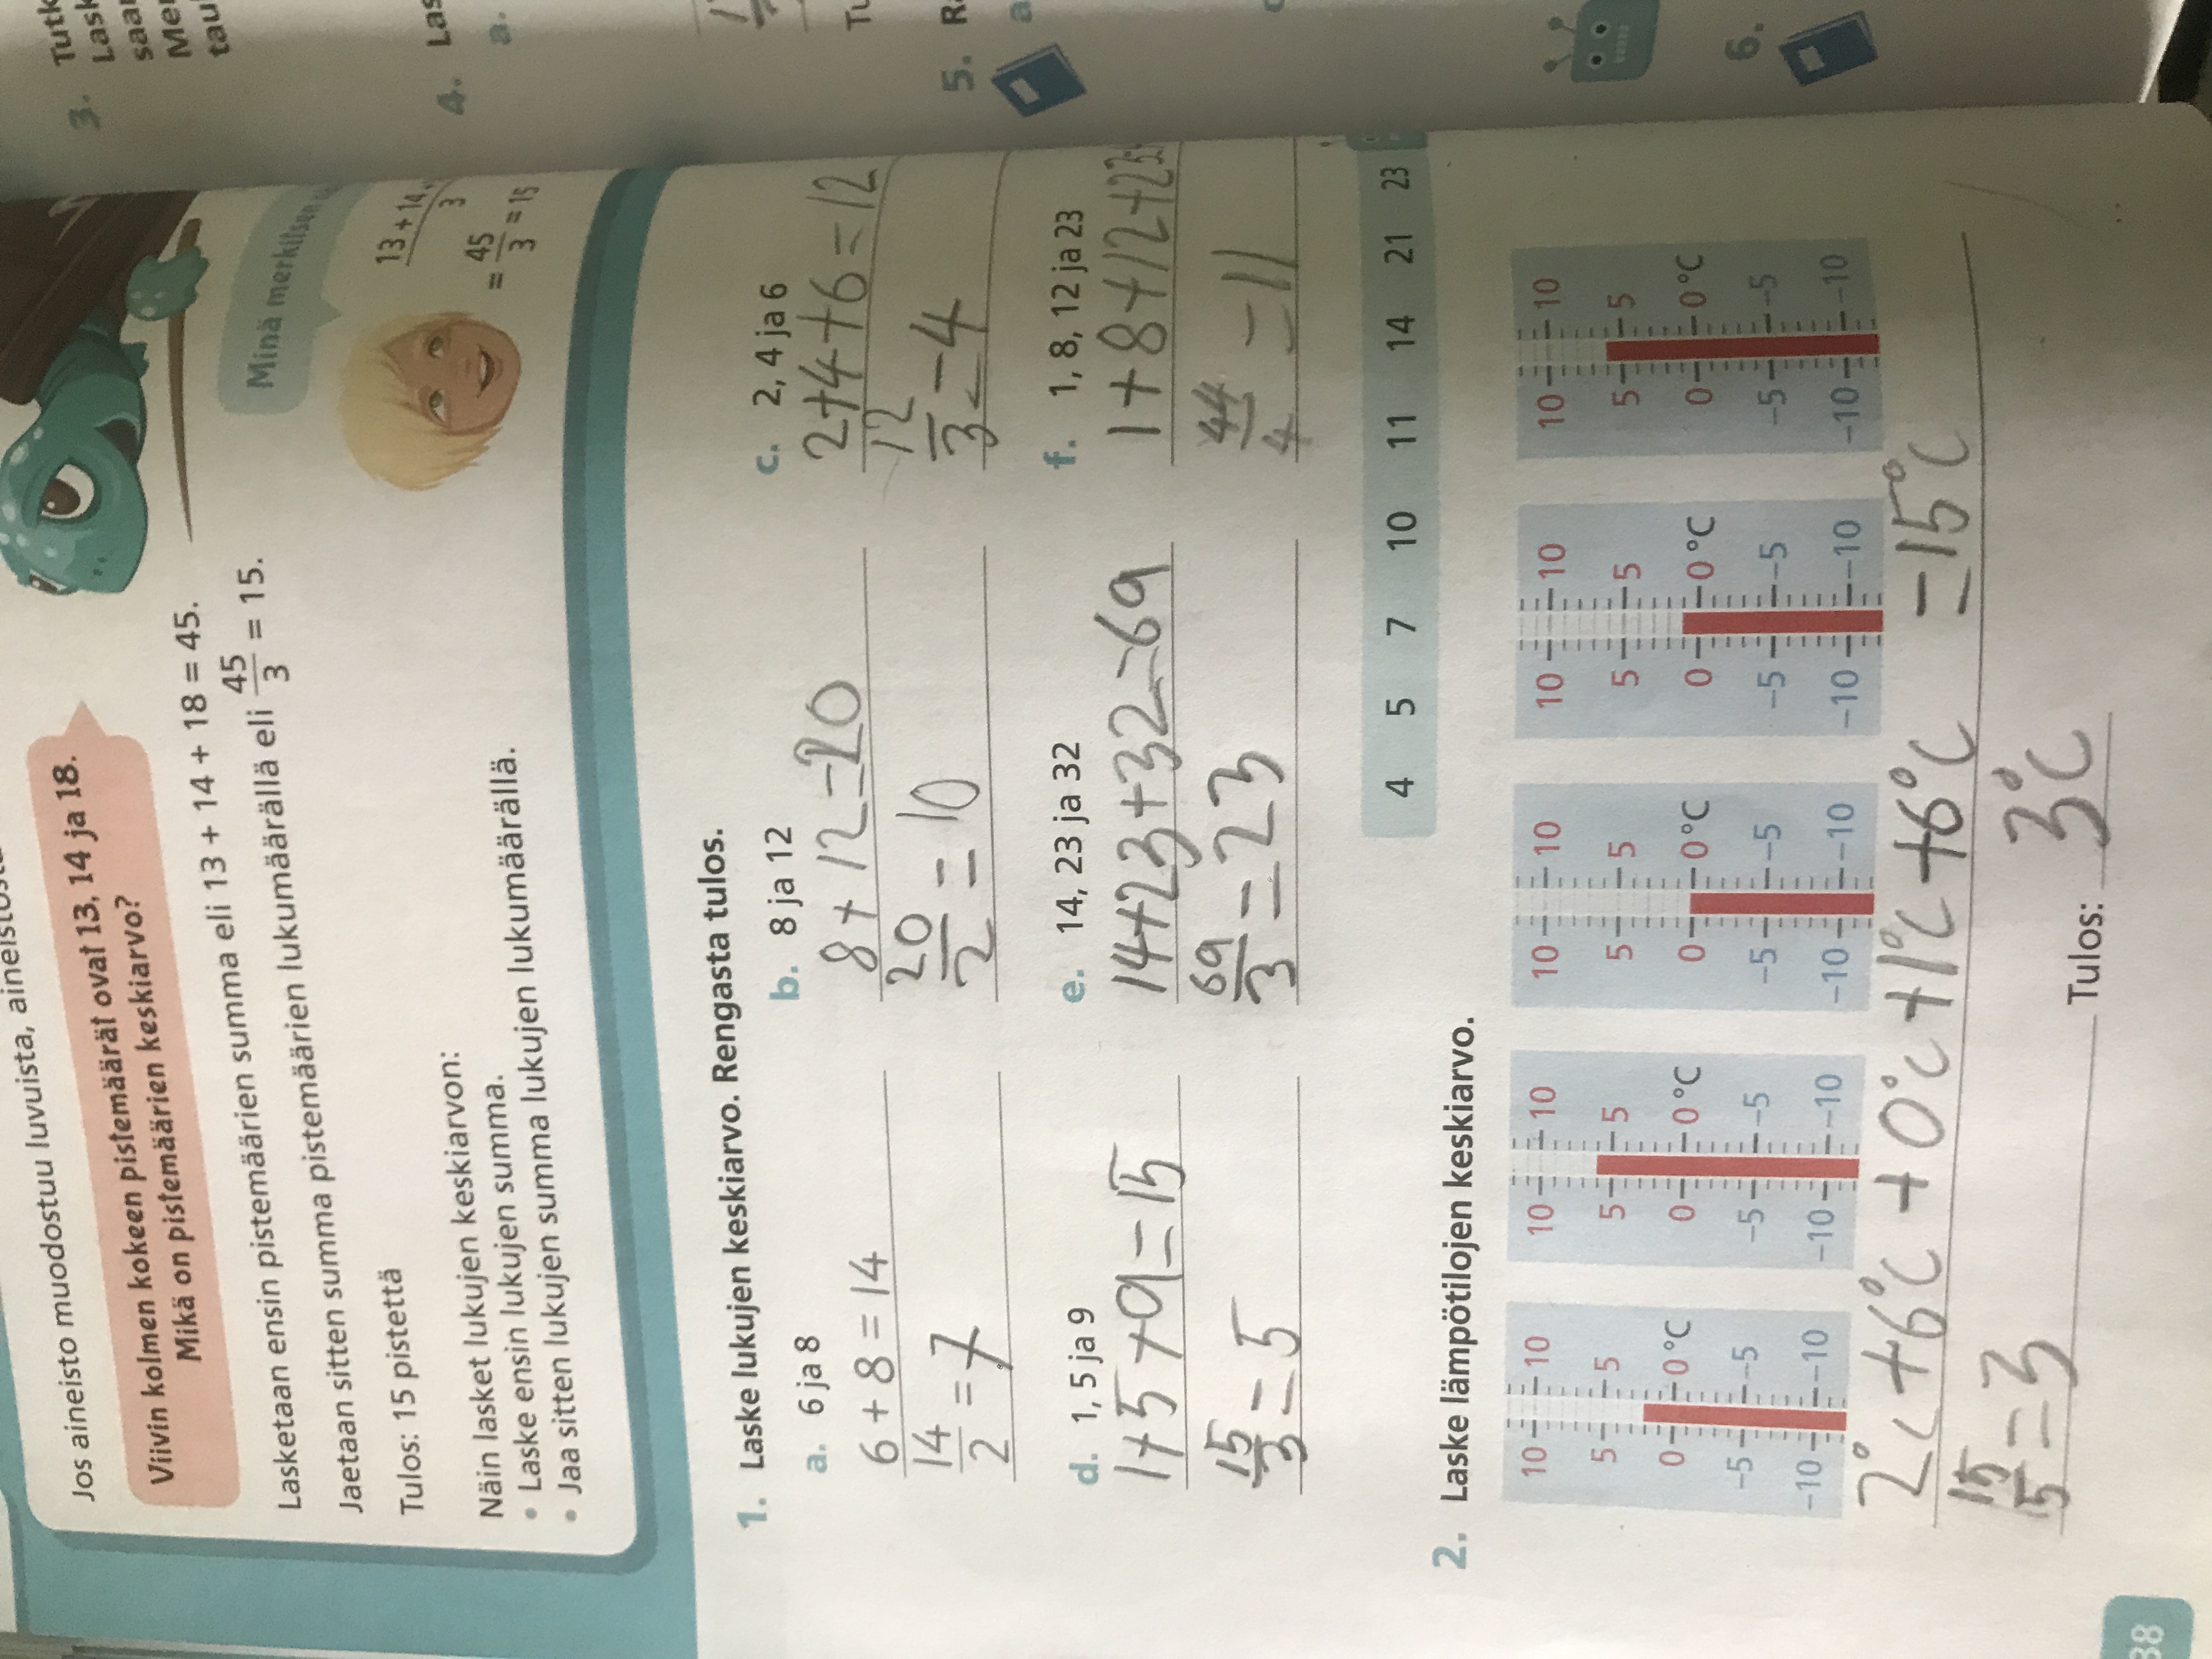 Jos aineisto muodostuu luvuista,
Viivin kolmen kokeen pistemäärät ovat 13, 14 ja 18.
Mikä on pistemäärien keskiarvo?
Lasketaan ensin pistemäärien summa eli 13 + 14 + 18 = 45.
Jaetaan sitten summa pistemäärien lukumäärällä eli 45/3 = 15.
Tulos: 15 pistettä
Näin lasket lukujen keskiarvon:
• Laske ensin lukujen summa.
• Jaa sitten lukujen summa lukujen lukumäärällä.
Minä merkitsen
13 + 14
3
= 45/3 = 15
1. Laske lukujen keskiarvo. Rengasta tulos.
a. 6 ja 8
6 + 8 = 14
14/2 = 7
b. 8 ja 12
8 + 12 = 20
20/2 = 10
c. 2, 4 ja 6
2+4+6=12
12/3 = 4
d. 1, 5 ja 9
1+5+9=15
15/3 = 5
e. 14, 23 ja 32
14+23+32=69
69/3 = 23
f. 1, 8, 12 ja 23
1+8+12+23
44/4 = 11
4 5 7 10 11 14 21 23
2. Laske lämpötilojen keskiarvo.
10 10
5 5
0 0 °C
−5 −5
−10 −10
10 10
5 5
0 0 °C
−5 −5
−10 −10
10 10
5 5
0 0 °C
−5 −5
−10 −10
10 10
5 5
0 0 °C
−5 −5
−10 −10
10 10
5 5
0 0 °C
−5 −5
−10 −10
2°C +6°C +0°C +1°C +6°C =15°C
15/5 = 3
Tulos: 3°C
38
3. Tutk
Lask
saa
Mer
tau
4. Las
a.
Tu
5. R
a
6.